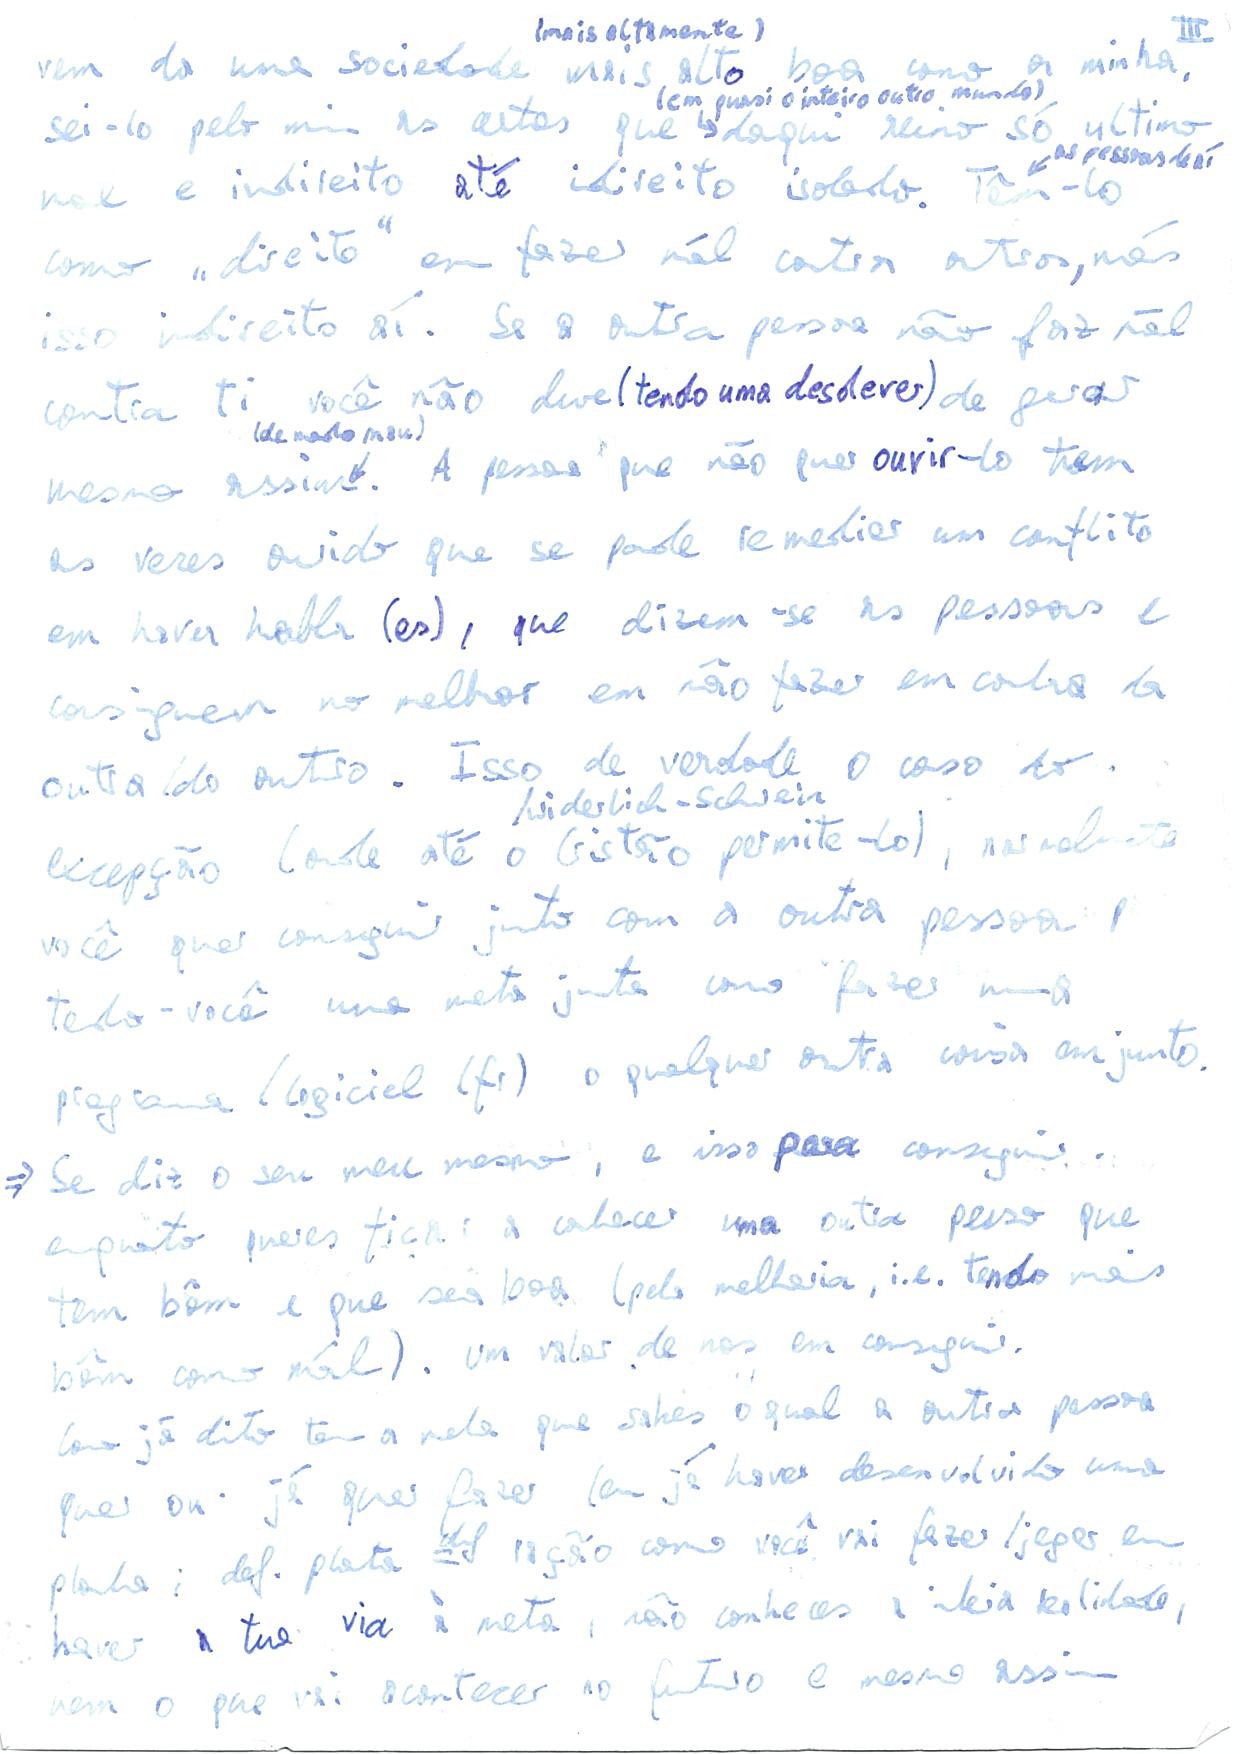 (mais altamente) III
vem da uma sociedade mais alto boa como a minha,
(em quasi o inteiro outro mundo)
sei-lo pelo min as cartas que daqui reino só ultimo
as pessoas de aí
mal e indireito até idireito isolado. Têm-lo
como „direito“ em fazer mál contra outros, más
isso indireito aí. Se a outra pessoa não faz mál
contra ti você não deve (tendo uma desdever) de gerar
(de modo mau)
mesmo assim. A pessoa que não quer ouvir-lo tem
as vezes ouvido que se pode remediar um conflito
em haver habla (es), que dizem-se as pessoas e
consiguem no melhor em não fazer em contra da
outra/do outro. Isso de verdade o caso do.
/widerlich-Schwein
excepção (onde até o Cristão permite-lo), normalmente
você quer conseguir junto com a outra pessoa
tendo-você uma meta junta como fazer uma
programa (logiciel (fr) o qualquer outra coisa em junto.
⇒ Se diz o seu meu mesmo, e isso para conseguir.
enquato queres ficar a conhecer uma outra pesso que
tem bôm e que seja boa (pela melhoria, i.e. tendo mais
bôm como mál). Um valor de nos em conseguir.
Como já dito tem a meta que sabes o qual a outra pessoa
quer ou já quer fazer (em já haver desenvolvido uma
planta; def. planta =def ração como você vai fazer/jeger em
haver a tua via à meta, não conheces a inteia realidade,
nem o que vai acontecer no futuro e mesmo assim